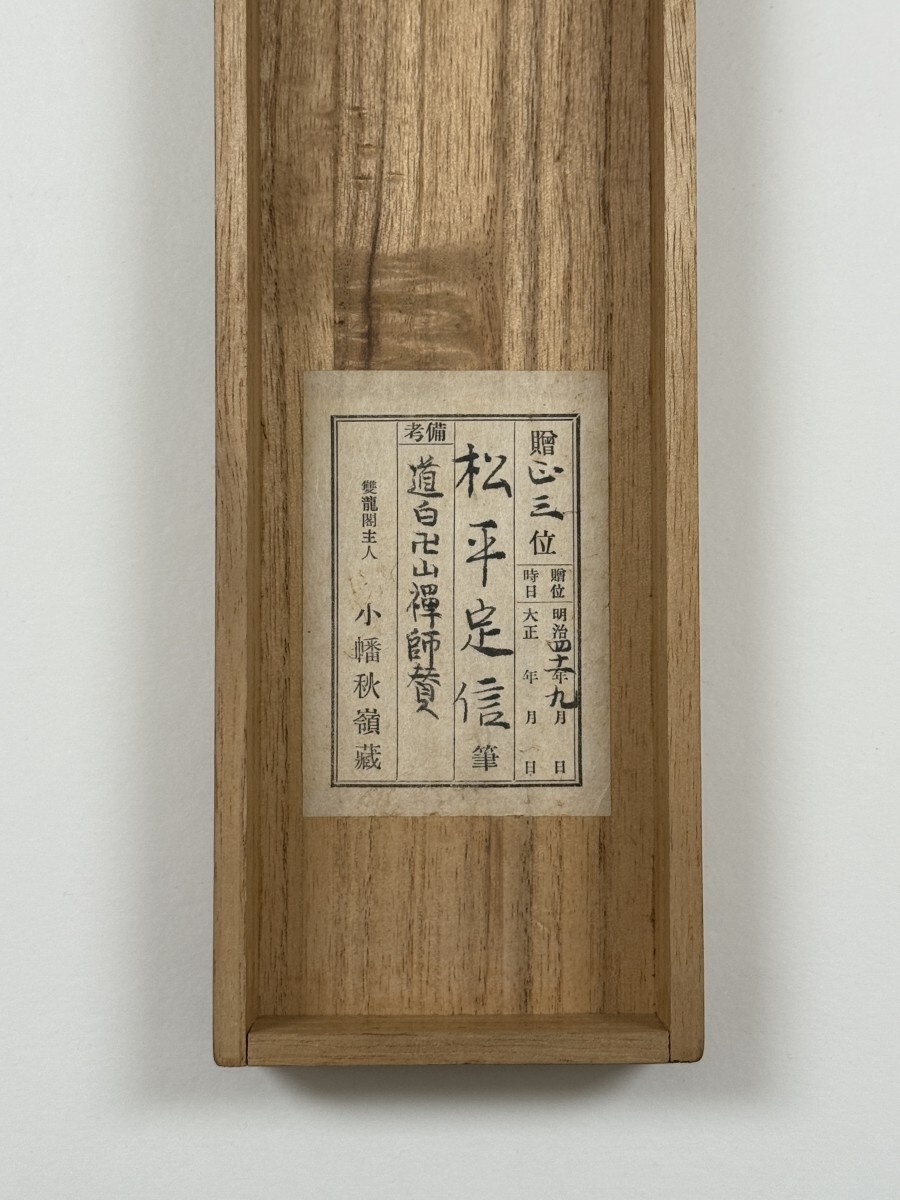 贈正三位
贈位時日
明治四十一年九月　日
大正　年　月　日
松平定信筆
備考
道白卍山禪師賛
雙龍閣主人　小幡秋嶺藏